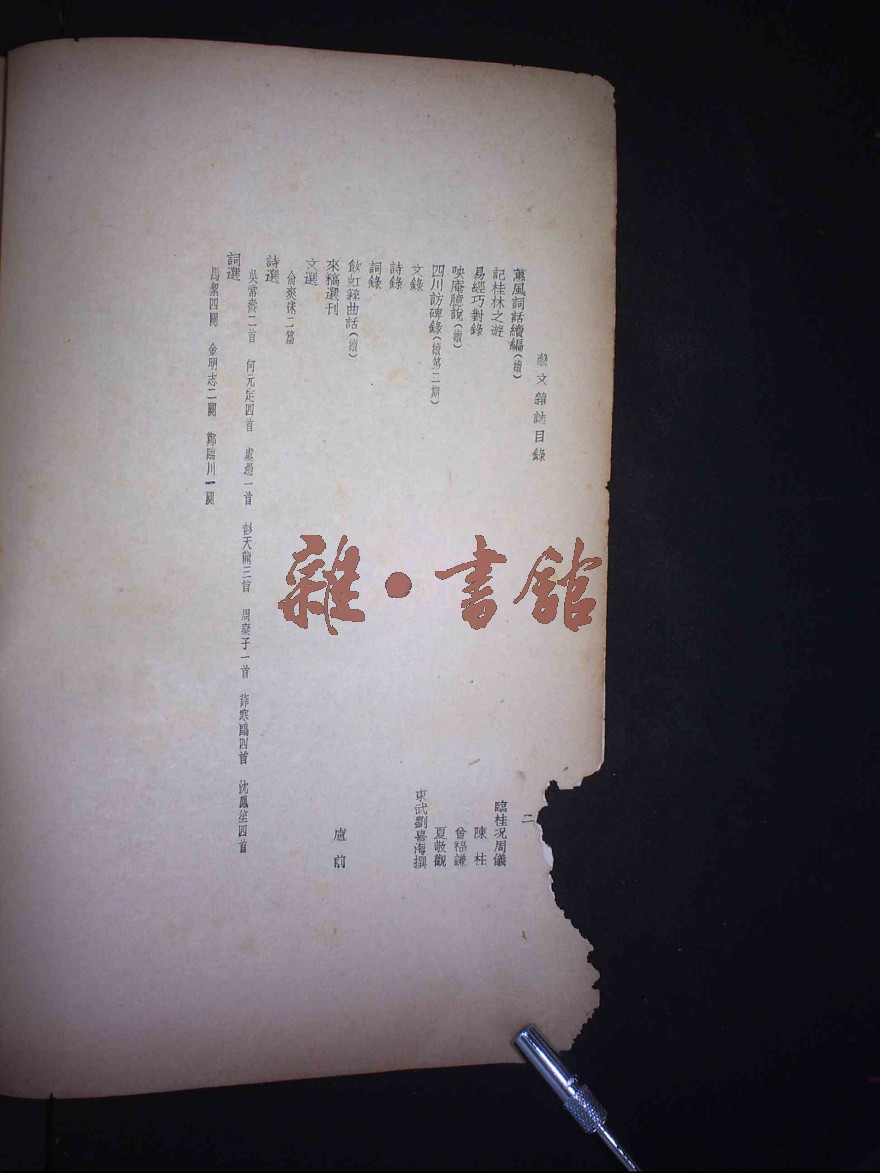 文雜誌目錄
二
蕙風詞話續編(續)
臨桂况周儀
記桂林之遊
陳柱
易經巧對錄
曾福謙
吷庵臆說(續)
夏敬觀
四川訪碑錄(續第二期)
東武劉喜海撰
文錄
詩錄
詞錄
飲虹簃曲話(續)
盧前
來稿選刊
文選
二篇
詩選
吳常燾二首 何元定四首 一首 彭天龍三首 周棄子一首 薛寒鷗四首 沈鳳笙四首
詞選
馬絜四闋 金明志二闋 鄭臨川一闋
雜·書館